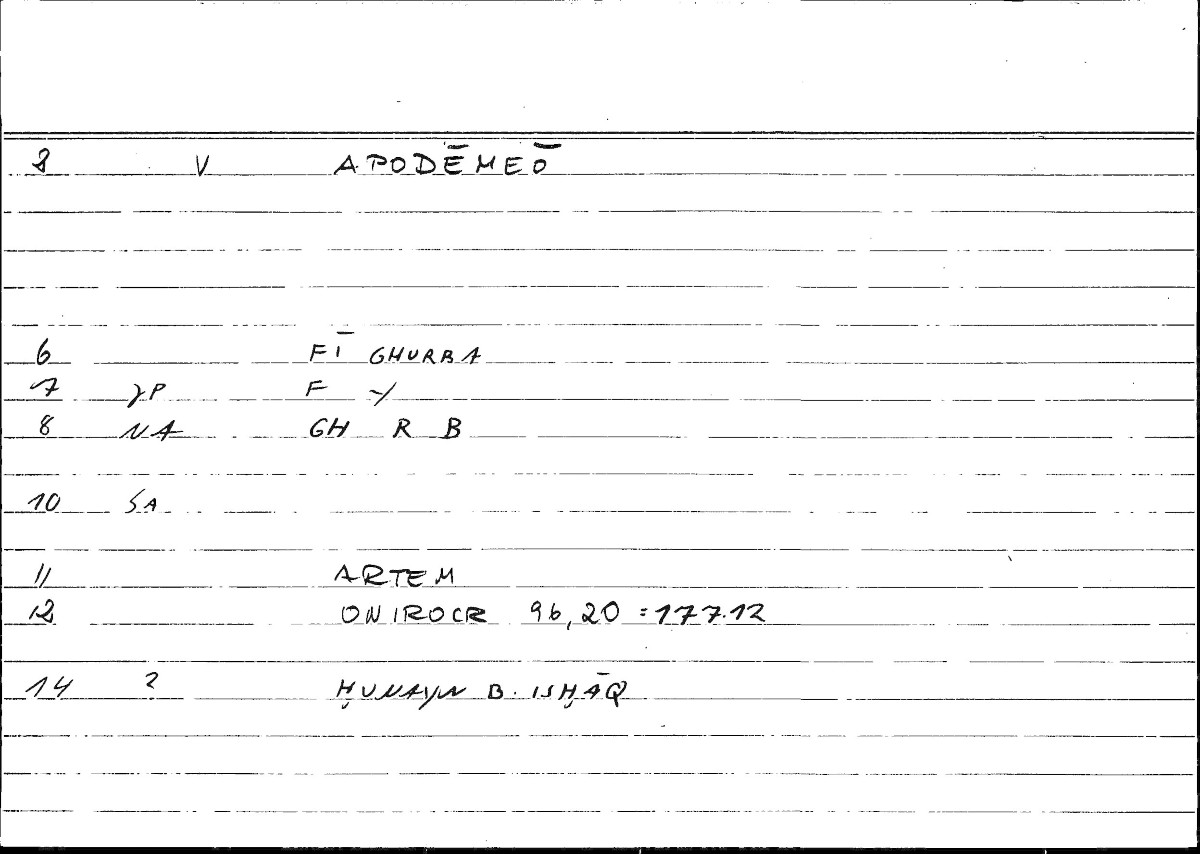 2 V APODĒMEŌ
6 FĪ GHURBA
7 PP F Y
8 NA GH R B
10 SA
11 ARTEM
12 ONIROCR 96,20 = 177.12
14 2 ḤUNAYN B. ISḤĀQ